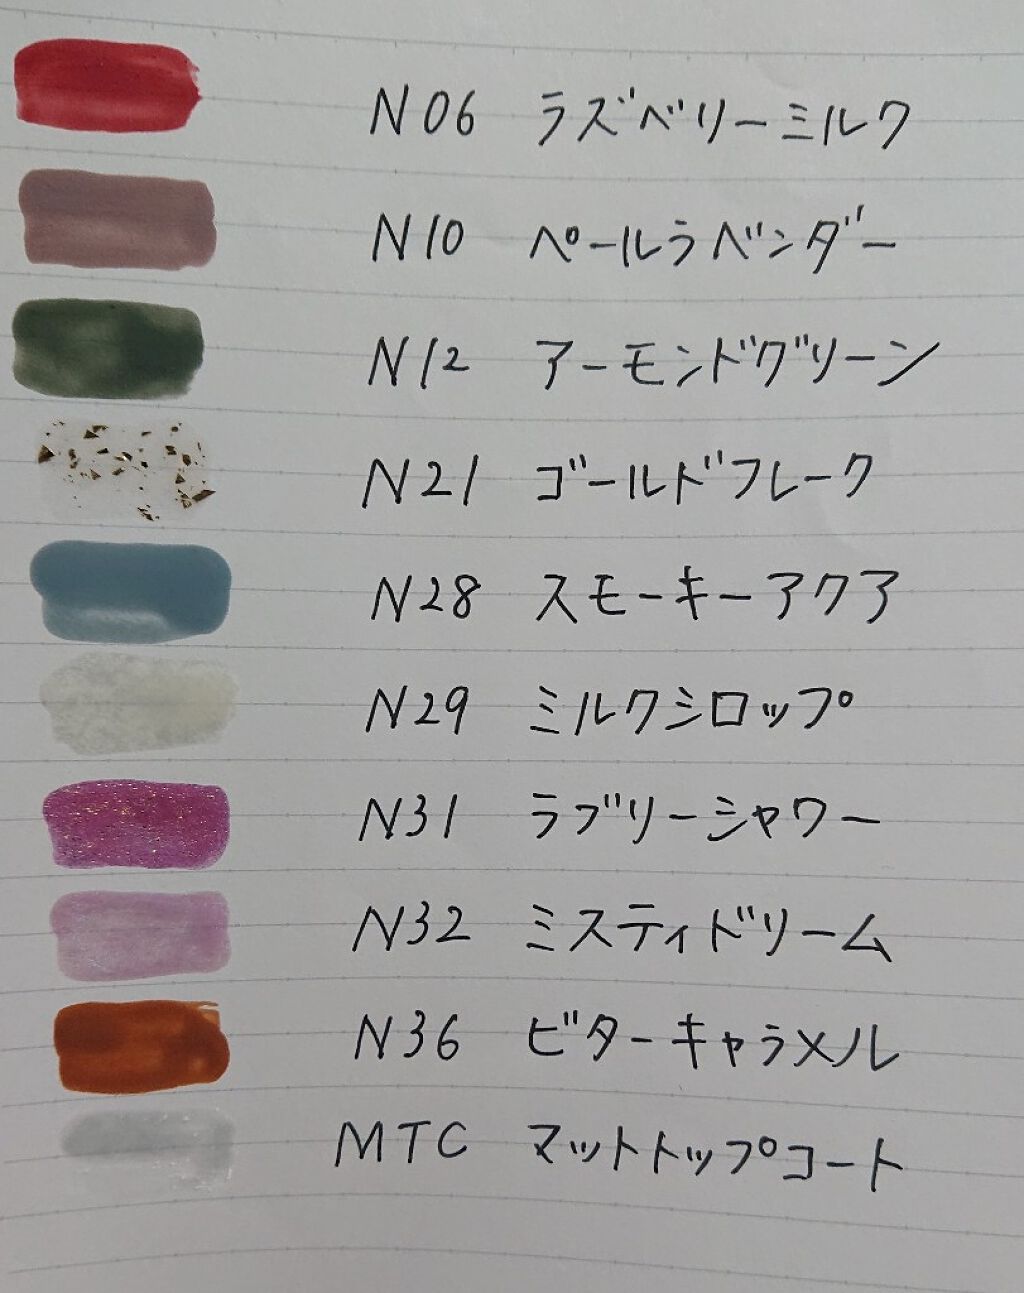 N06 ラズベリーミルク
N10 ペールラベンダー
N12 アーモンドグリーン
N21 ゴールドフレーク
N28 スモーキーアクア
N29 ミルクシロップ
N31 ラブリーシャワー
N32 ミスティドリーム
N36 ビターキャラメル
MTC マットトップコート